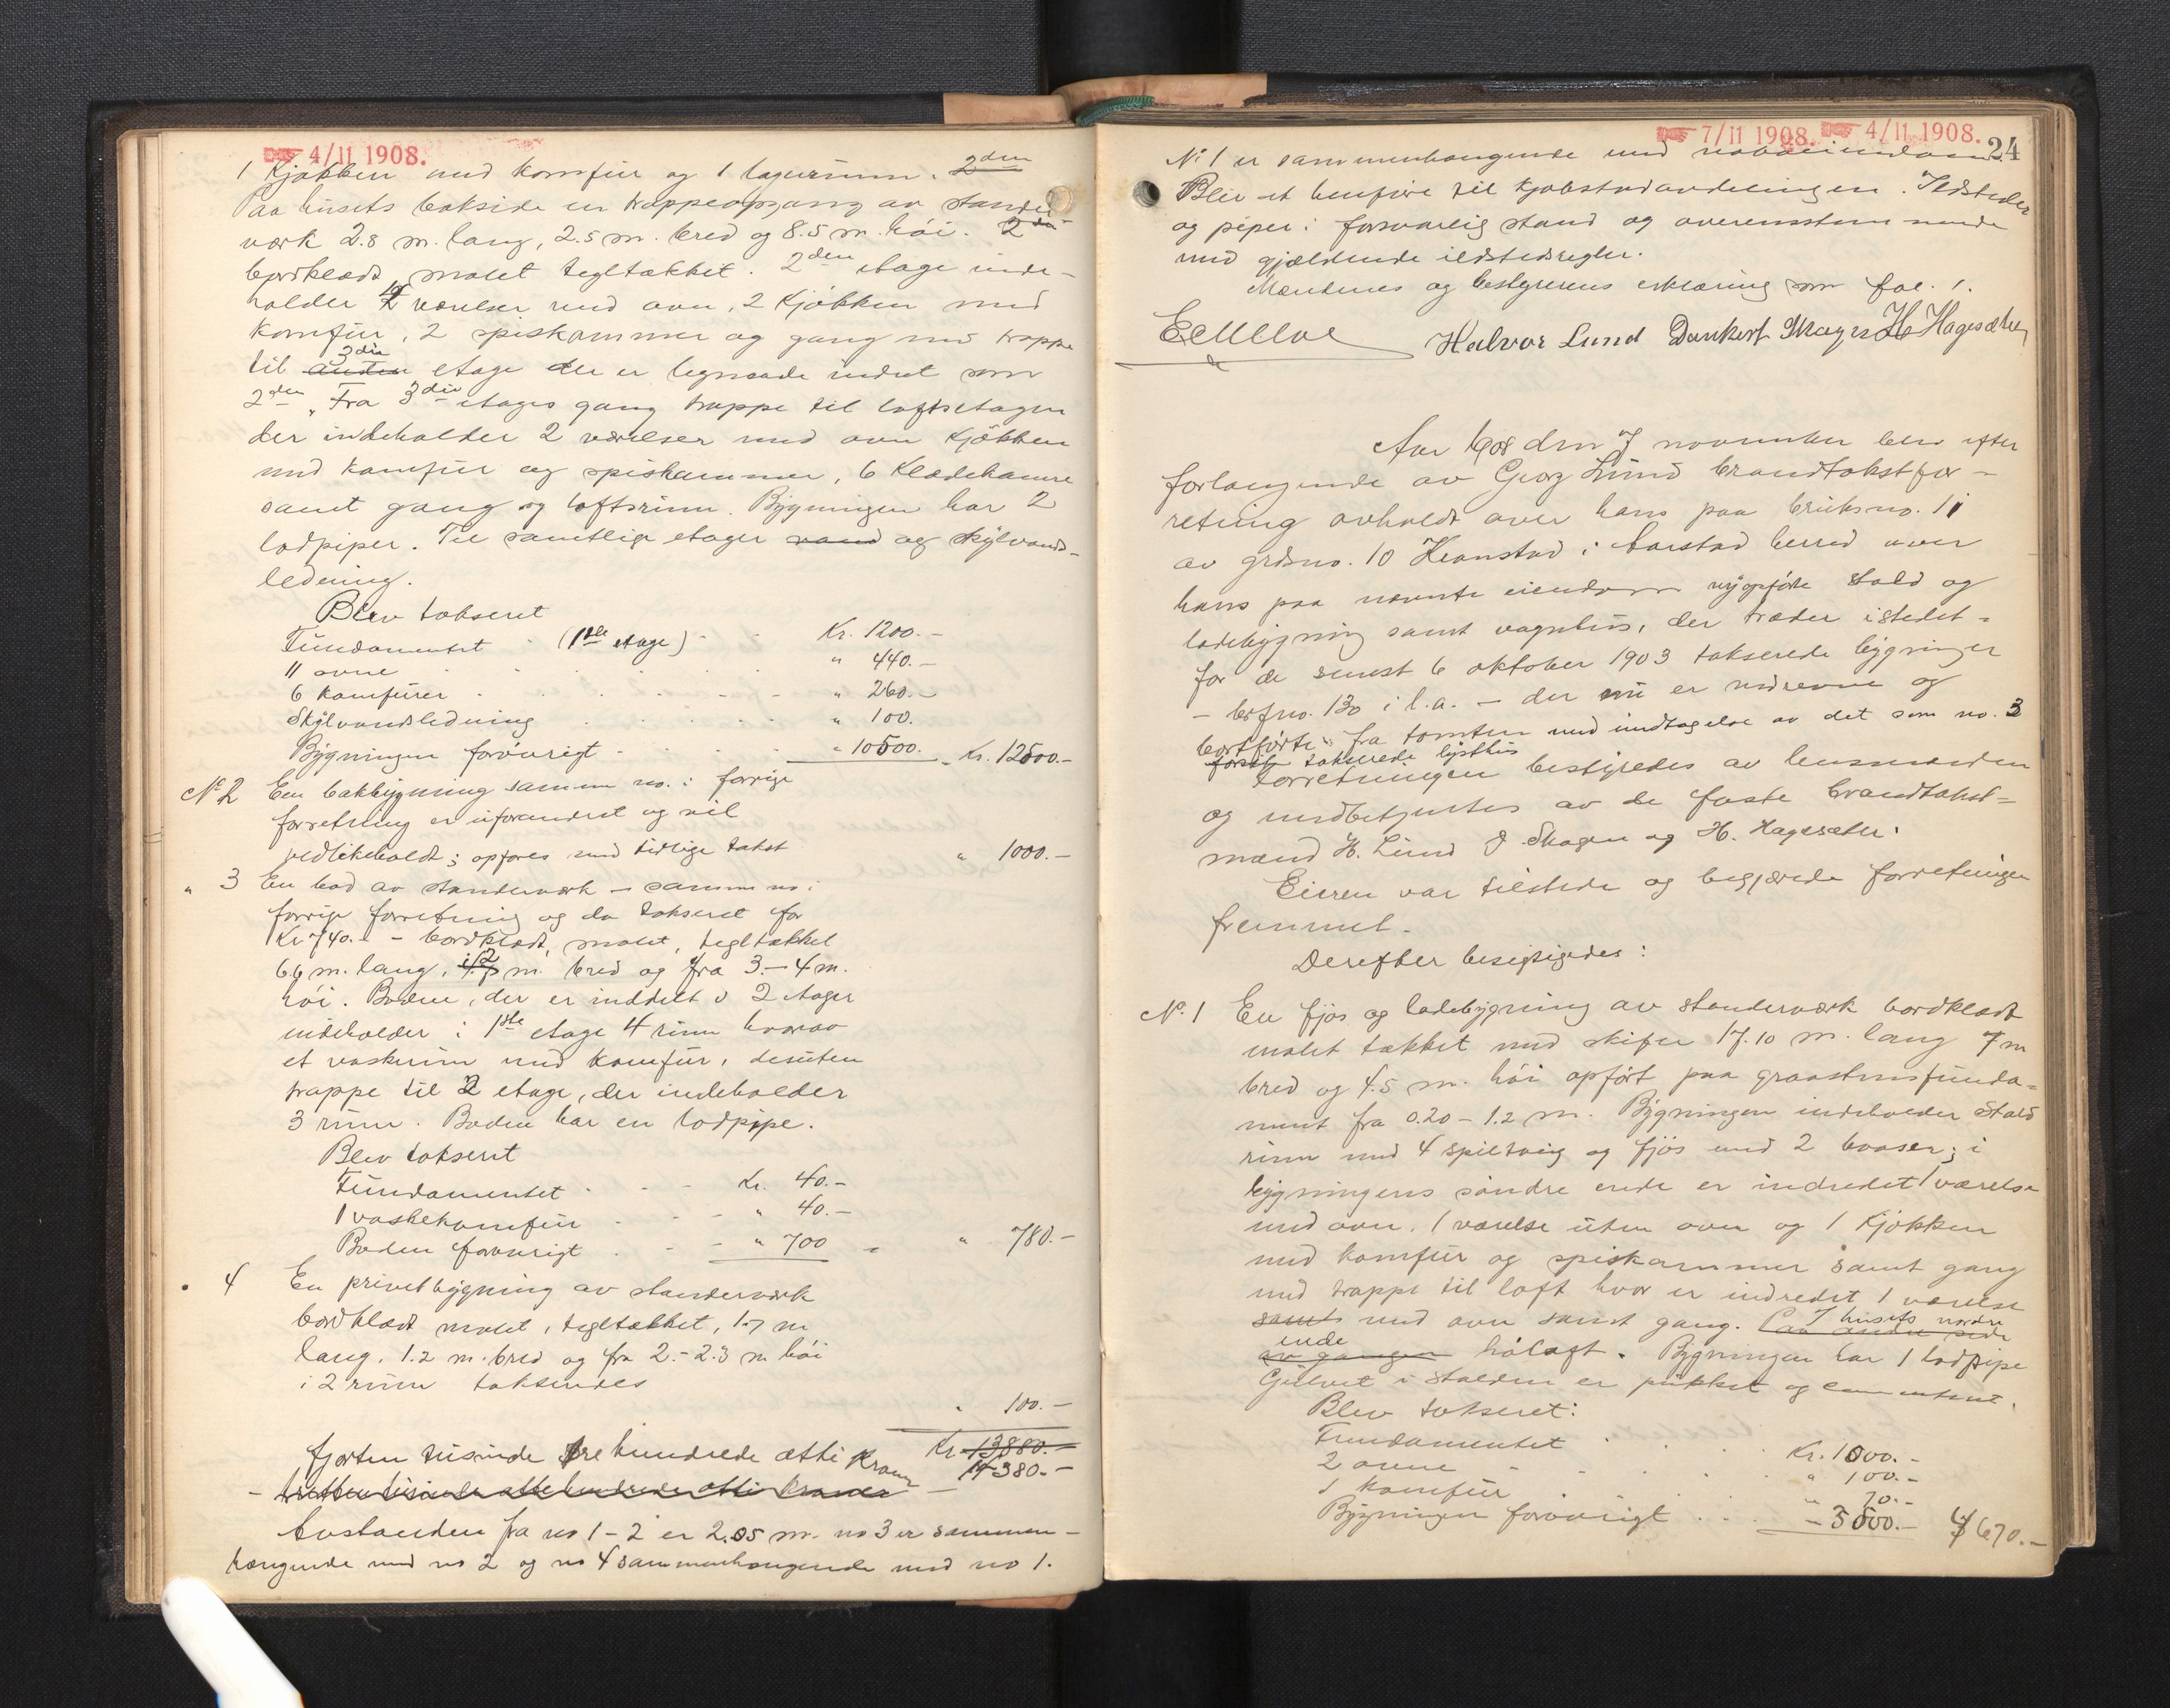 4/11 1908.
1 Kjøkken med komfür og 1 lagerrüm. 2den
Paa hüsets bakside en trappeopgang av stender-
værk 2.8 m. lang, 2.5 m. bred og 8.5 m. høi.
bordklædt, malet tegltækket. 2den etage inde-
holder 4 værelser med ovn, 2 Kjøkken med
komfür, 2 spiskammer og gang med trappe
til anden 3die etage der er legnende indret som
2den. Fra 3die etages gang trappe til loftsetagen
der indeholder 2 værelser med ovn Kjøkken
med komfür og spiskammer, 6 Klædekamre
samt gang og loftsrüm. Bygningen har 2
lodpiper. Til samtlige etager vand og skylvands-
ledning.
Blev takseret
Fündamentet (1ste etage) Kr. 1200.-
11 ovne " 440.-
6 komfürer " 260.-
Skylvandsledning " 100.
Bygningen forøvrigt " 10500. Kr. 12500.-
No 2 En bakbygning samme no. i forrige
forretning er üforandret og vel
vedlikeholdt; opføres med tidlige takst " 1000.-
" 3 En bod av stenderværk - samme no i
forrige forretning og da takseret for
Kr 740.- - bordklædt, malet, tegltækket
6.9 m. lang, m. bred og fra 3.-4 m.
høi. Boden, der er inddelt i 2 etager
indeholder i 1ste etage 4 rüm hvorav
et vaskerüm med komfür, desüten
trappe til 2 etage, der indeholder
3 rüm. Boden har en lodpipe.
Blev takseret
Fündamentet Kr. 40.-
1 vaskekomfür " 40.-
Boden forøvrigt " 700 " 780.-
" 4 En privetbygning av stenderværk
bordklædt malet, tegltækket, 1.7 m
lang, 1.2 m. bred og fra 2.-2.3 m høi
i 2 rüm taksendes
" 100.-
Kr. 13880.-
fjorten tüsinde tre hündrede ætti Kroner 14380.-
- tretten tüsinde atte hundrede atti kroner -
Avstanden fra no 1-2 er 2.05 m. no 3 er sammen-
hængende med no 2 og no 4 sammenhængende med no 1.
7/11 1908. 4/11 1908.
24
No 1 er sammenhængende med naboeiendom.
Blev at henføre til Kjøbstadavdelingen. Ildsteder
og piper i forsvarlig stand og overensstemmende
med gjældende ildstedsregler.
Mændenes og bestyrerens erklæring som fol. 1.
Halvor Lund Dankert Skagen H Hagesæter
Aar 1908 den 7 november blev efter
forlangende av Georg Lünd brandtakstfor-
retning avholdt over hans paa brüksno. 11
av grdsno. 10 Kronstad i Aarstad herred over
hans paa nævnte eiendom nyopførte stald og
ladebygning samt vognhüs, der træder istedet-
for de senest 6 oktober 1903 takserede bygninger
- brfno. 130 i l.a. - der nü er nedrevne og
bortførte fra tomten med ündtagelse av det som no. 3
takserede lysthüs
Forretningen bestyredes av lensmanden
og medbetjentes av de faste brandtakst-
mænd H. Lünd D. Skagen og H. Hagesæter.
Eieren var tilstede og begjærede forretningen
fremmet.
Derefter besigtigedes:
No. 1 En fjøs og ladebygning av stenderværk bordklædt
malet tækket med skifer 17.10 m. lang 7 m
bred og 4.5 m. høi opført paa graastensfünda-
ment fra 0.20 - 1.2 m. Bygningen indeholder stald
rüm med 4 spiltaug og fjøs med 2 baaser; i
bygningens søndre ende er indredet 1 værelse
med ovn, 1 værelse üten ovn og 1 Kjøkken
med komfür og spiskammer samt gang
med trappe til loft hvor er indredet 1 værelse
samt med ovn samt gang. Paa anden side I hüsets nordre
av gangen ende høloft. Bygningen har 1 lodpipe
Gülvet i stalden er pükket og cementeret.
Blev takseret:
Fündamentet Kr. 1000.-
2 ovne " 100.-
1 komfür " 70.-
Bygningen forøvrigt - 3500.- 4670.-